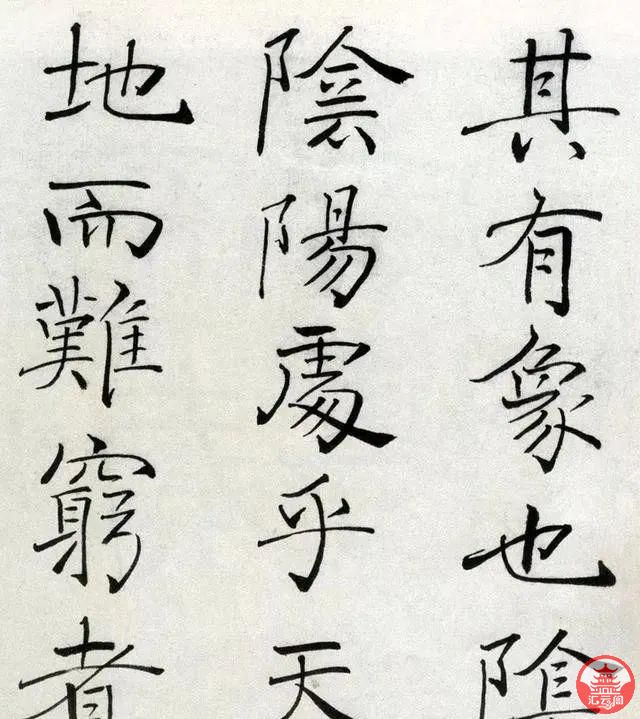 其有象也陰
陰陽處乎天
地而難窮者
汇云阁